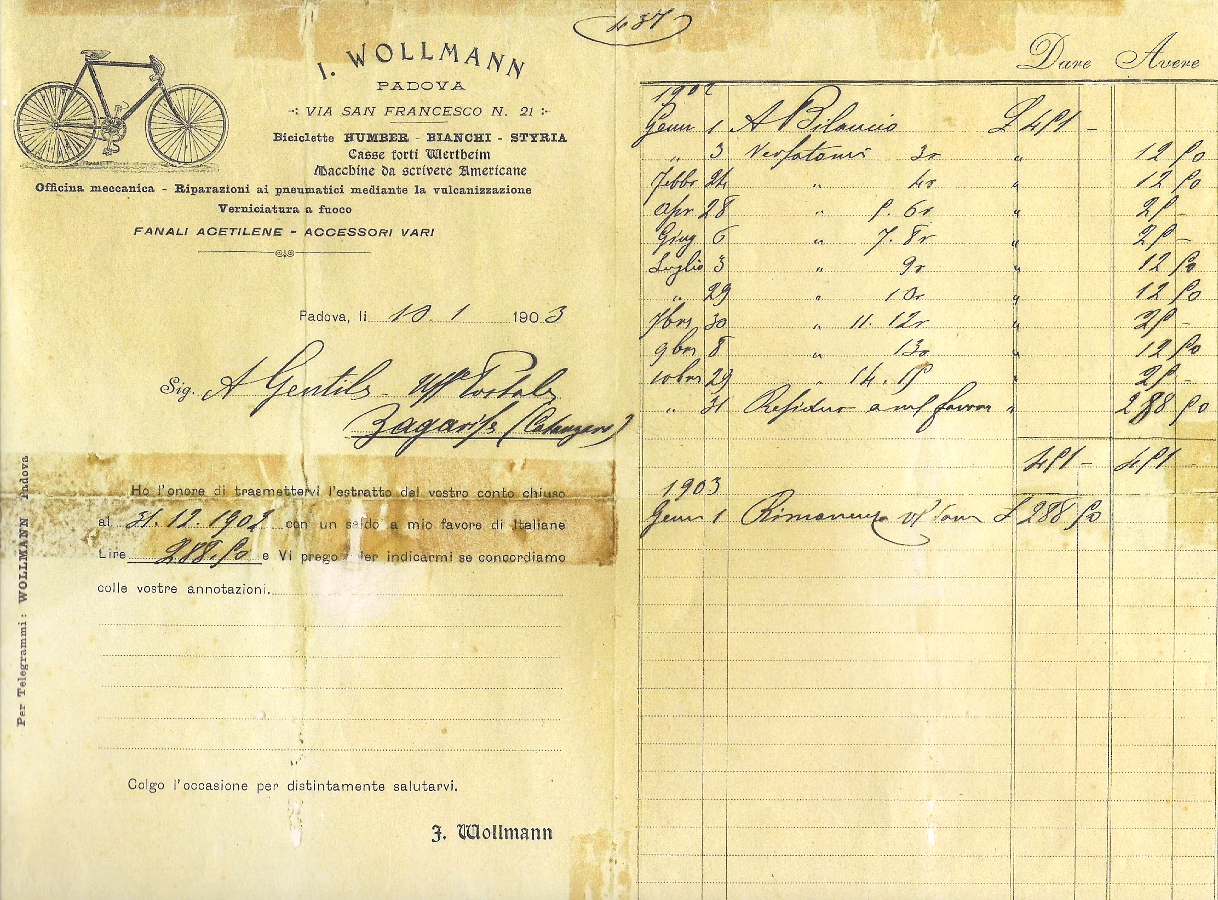 437
I. WOLLMANN
PADOVA
VIA SAN FRANCESCO N. 21
Biciclette HUMBER - BIANCHI - STYRIA
Casse forti Wertheim
Macchine da scrivere Americane
Officina meccanica - Riparazioni ai pneumatici mediante la vulcanizzazione
Verniciatura a fuoco
FANALI ACETILENE - ACCESSORI VARI
Padova, li 10. 1 1903
Sig. A Gentile - Uff Postale
Zagarise (Catanzaro)
Ho l'onore di trasmettervi l'estratto del vostro conto chiuso
al 31. 12. 1902 con un saldo a mio favore di Italiane
Lire 288.50 e Vi prego per indicarmi se concordiamo
colle vostre annotazioni.
Colgo l'occasione per distintamente salutarvi.
J. Wollmann
Per Telegrammi: WOLLMANN Padova
Dare Avere
1902
Genn 1 A Bilancio £ 451 -
" 3 3a " 12 50
Febbr 24 " 4a " 12 50
Apr 28 " 5. 6a " 25 -
Giug 6 " 7. 8a " 25 -
Luglio 3 " 9a " 12 50
" 29 " 10a " 12 50
7bre 30 " 11. 12a " 25 -
9bre 8 " 13a " 12 50
10bre 29 " 14. 15 " 25 -
" 31 Residuo a favore " 288 50
451 - 451 -
1903
Genn 1 Rimanenza £ 288 50